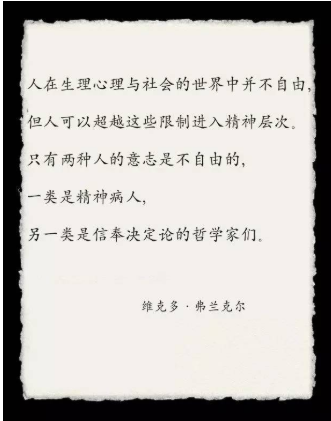 人在生理心理与社会的世界中并不自由，
但人可以超越这些限制进入精神层次。
只有两种人的意志是不自由的，
一类是精神病人，
另一类是信奉决定论的哲学家们。
维克多·弗兰克尔